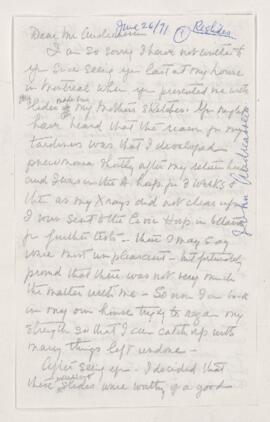 June 26/71 ① Re slides
Dear Mr Andreassen
I am so sorry I have not written to
you since seeing you last at my house
in Montreal when you presented me with
slides of my Mother's sketches. You might
have heard that the reason for my
tardiness was that I developed
pneumonia shortly after my return here
and I was in the A. hosp. for 3 weeks &
then as my Xrays did not clear up
I was sent to the Civic Hosp in Ottawa
for further tests — these I may say
were most unpleasant — but fortunately
proved that there was not very much
the matter with me — So now I am back
in my own house trying to regain my
strength so that I can catch up with
many things left undone —
After seeing you I decided that
these slides were worthy of a good
John Andreassen